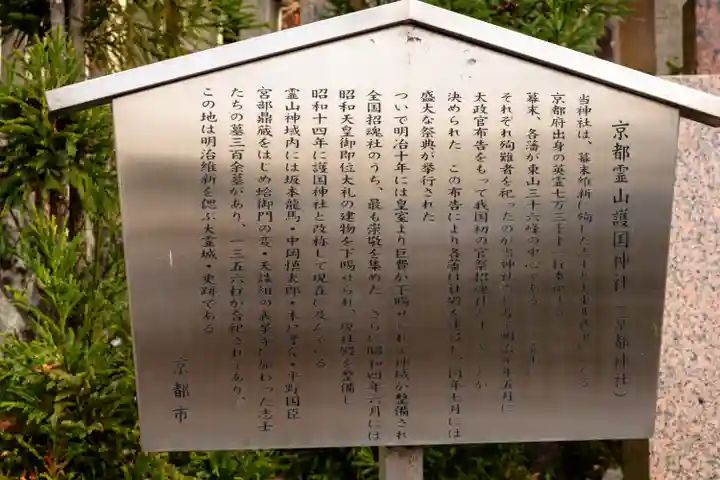 京都霊山護国神社（京都神社）
当神社は、幕末維新に殉した
京都府出身の英霊七万三千十一
幕末、各藩が東山三十六峰の中心である
それぞれ殉難者を祀ったのが当神社 明治元年五月に
太政官布告をもって我国初の官祭招魂社
決められた この布告により各藩は社殿を建設し、同年七月には
盛大な祭典が挙行された
ついで明治十年には皇室より巨費が下賜せられ神域が整備され
全国招魂社のうち、最も崇敬を集めた さらに昭和四年六月には
昭和天皇御即位大礼の建物を下賜せられ、現社殿を整備し
昭和十四年に護国神社と改称して現在に及んでいる
霊山神域内には坂本龍馬・中岡慎太郎・木戸孝允・平野国臣
宮部鼎蔵をはじめ蛤御門の変・天誅組の義挙等に加わった志士
たちの墓三百余墓があり、一三五六柱が合祀されており、
この地は明治維新を偲ぶ大霊域・史跡である
京都市